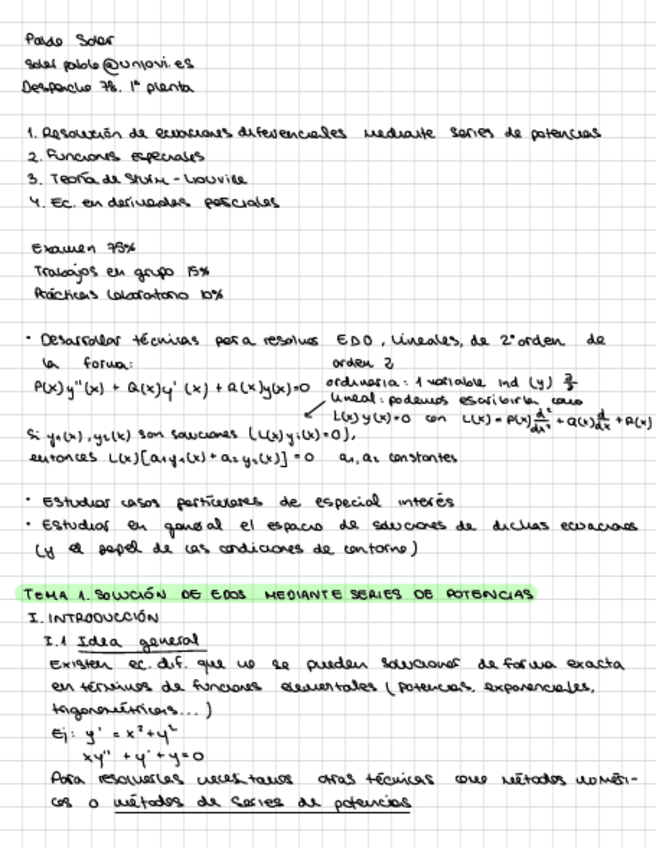 Pablo Soler
soler pablo@uniovi.es
Despacho 78. 1ª planta
1. Resolución de ecuaciones diferenciales mediante series de potencias
2. Funciones especiales
3. Teoría de Sturm - Liouville
4. Ec. en derivadas parciales
Examen 75%
Trabajos en grupo 15%
Prácticas laboratorio 10%
· Desarrollar técnicas para resolver EDO, lineales, de 2º orden de
la forma:
orden 2
P(x)y''(x) + Q(x)y'(x) + R(x)y(x)=0
ordinaria: 1 variable ind (y)
lineal: podemos escribirla como
L(x)y(x)=0 con L(x)=P(x)d²/dx² + Q(x)d/dx + R(x)
Si y₁(x), y₂(x) son soluciones (L(x)yᵢ(x)=0),
entonces L(x)[a₁y₁(x)+a₂y₂(x)]=0 a₁,a₂ constantes
· Estudiar casos particulares de especial interés
· Estudiar en general el espacio de soluciones de dichas ecuaciones
(y el papel de las condiciones de contorno)
TEMA 1. SOLUCIÓN DE EDOS MEDIANTE SERIES DE POTENCIAS
I. INTRODUCCIÓN
I.1 Idea general
Existen ec. dif. que no se pueden solucionar de forma exacta
en términos de funciones elementales (potencias, exponenciales,
trigonométricas...)
Ej: y' = x²+y²
xy'' + y' + y=0
Para resolverlas necesitamos otras técnicas como métodos numéri-
cos o métodos de series de potencias